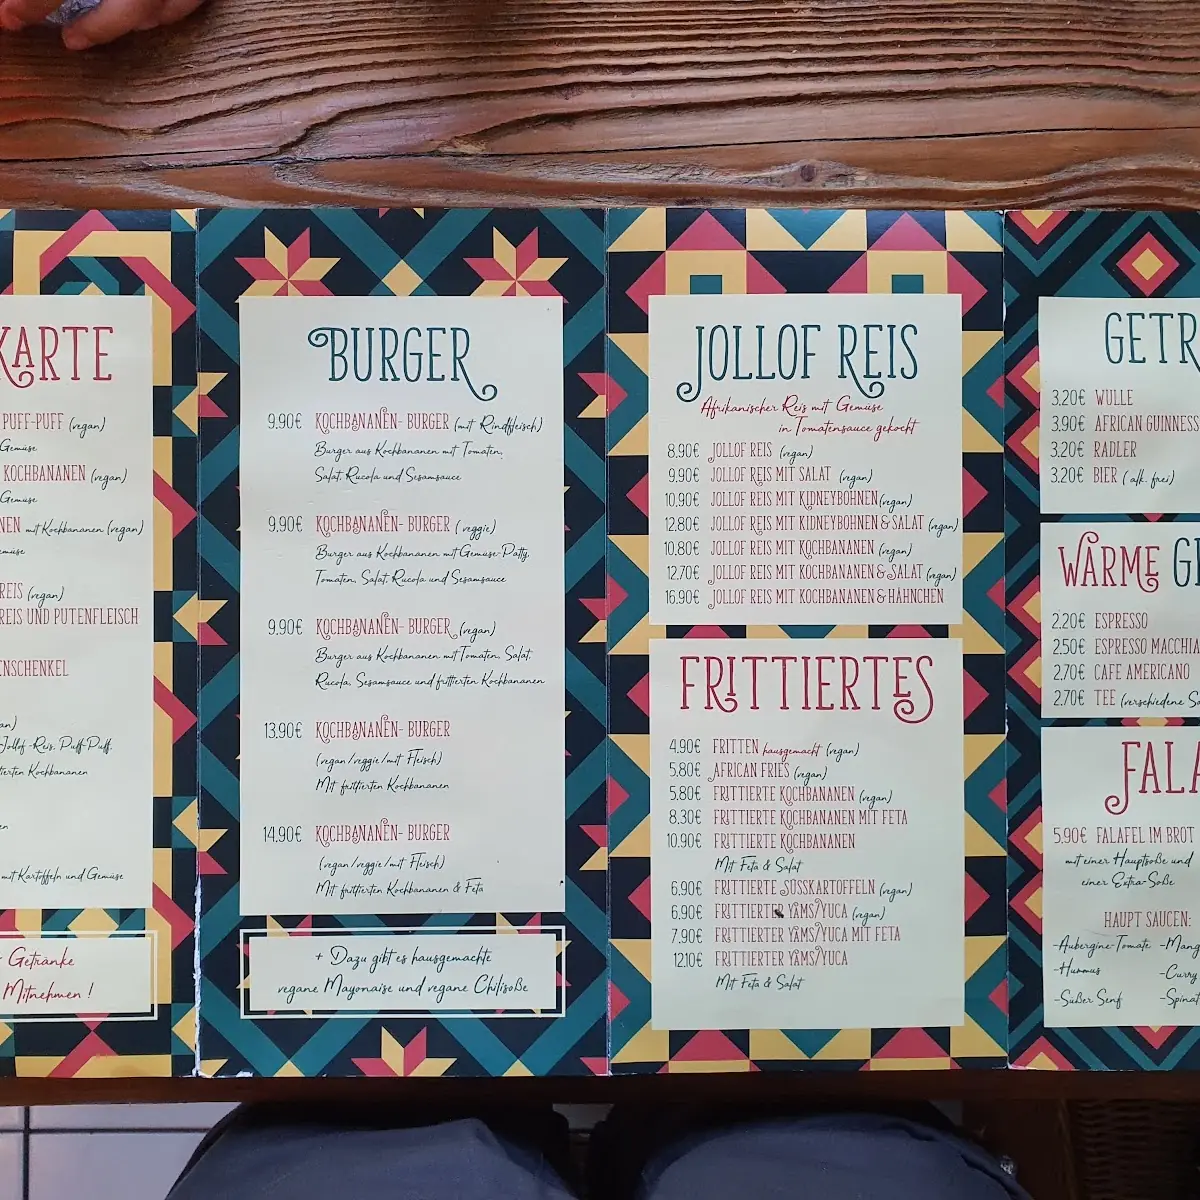 KARTE
PUFF-PUFF (vegan)
Gemüse
KOCHBANANEN (vegan)
Gemüse
mit Kochbananen (vegan)
REIS (vegan)
REIS UND PUTENFLEISCH
Jollof-Reis, Puff-Puff,
Kochbananen
mit Kartoffeln und Gemüse
Getränke
Mitnehmen !
BURGER
9.90€ KOCHBANANEN- BURGER (mit Rindfleisch)
Burger aus Kochbananen mit Tomaten,
Salat, Rucola und Sesamsauce
9.90€ KOCHBANANEN- BURGER (veggie)
Burger aus Kochbananen mit Gemüse-Patty,
Tomaten, Salat, Rucola und Sesamsauce
9.90€ KOCHBANANEN- BURGER (vegan)
Burger aus Kochbananen mit Tomaten, Salat,
Rucola, Sesamsauce und frittierten Kochbananen
13.90€ KOCHBANANEN- BURGER
(vegan/veggie/mit Fleisch)
Mit frittierten Kochbananen
14.90€ KOCHBANANEN- BURGER
(vegan/veggie/mit Fleisch)
Mit frittierten Kochbananen & Feta
+ Dazu gibt es hausgemachte
vegane Mayonaise und vegane Chilisoße
JOLLOF REIS
Afrikanischer Reis mit Gemüse
in Tomatensauce gekocht
8.90€ JOLLOF REIS (vegan)
9.90€ JOLLOF REIS MIT SALAT (vegan)
10.90€ JOLLOF REIS MIT KIDNEYBOHNEN (vegan)
12.80€ JOLLOF REIS MIT KIDNEYBOHNEN & SALAT (vegan)
10.80€ JOLLOF REIS MIT KOCHBANANEN (vegan)
12.70€ JOLLOF REIS MIT KOCHBANANEN & SALAT (vegan)
16.90€ JOLLOF REIS MIT KOCHBANANEN & HÄHNCHEN
FRITTIERTES
4.90€ FRITTEN hausgemacht (vegan)
5.80€ AFRICAN FRIES (vegan)
5.80€ FRITTIERTE KOCHBANANEN (vegan)
8.30€ FRITTIERTE KOCHBANANEN MIT FETA
10.90€ FRITTIERTE KOCHBANANEN
Mit Feta & Salat
6.90€ FRITTIERTE SÜSSKARTOFFELN (vegan)
6.90€ FRITTIERTER YAMS/YUCA (vegan)
7.90€ FRITTIERTER YAMS/YUCA MIT FETA
12.10€ FRITTIERTER YAMS/YUCA
Mit Feta & Salat
GETR
3,20€ WULLE
3,90€ AFRICAN GUINNESS
3.20€ RADLER
3.20€ BIER ( alk. frei)
WARME GE
2.20€ ESPRESSO
2.50€ ESPRESSO MACCHIA
2.70€ CAFE AMERICANO
2.70€ TEE (verschiedene So
FALA
5.90€ FALAFEL IM BROT
mit einer Hauptsoße und
einer Extra-Soße
HAUPT SAUCEN:
-Aubergine-Tomate -Mang
-Hummus -Curry
-Süßer Senf -Spinat